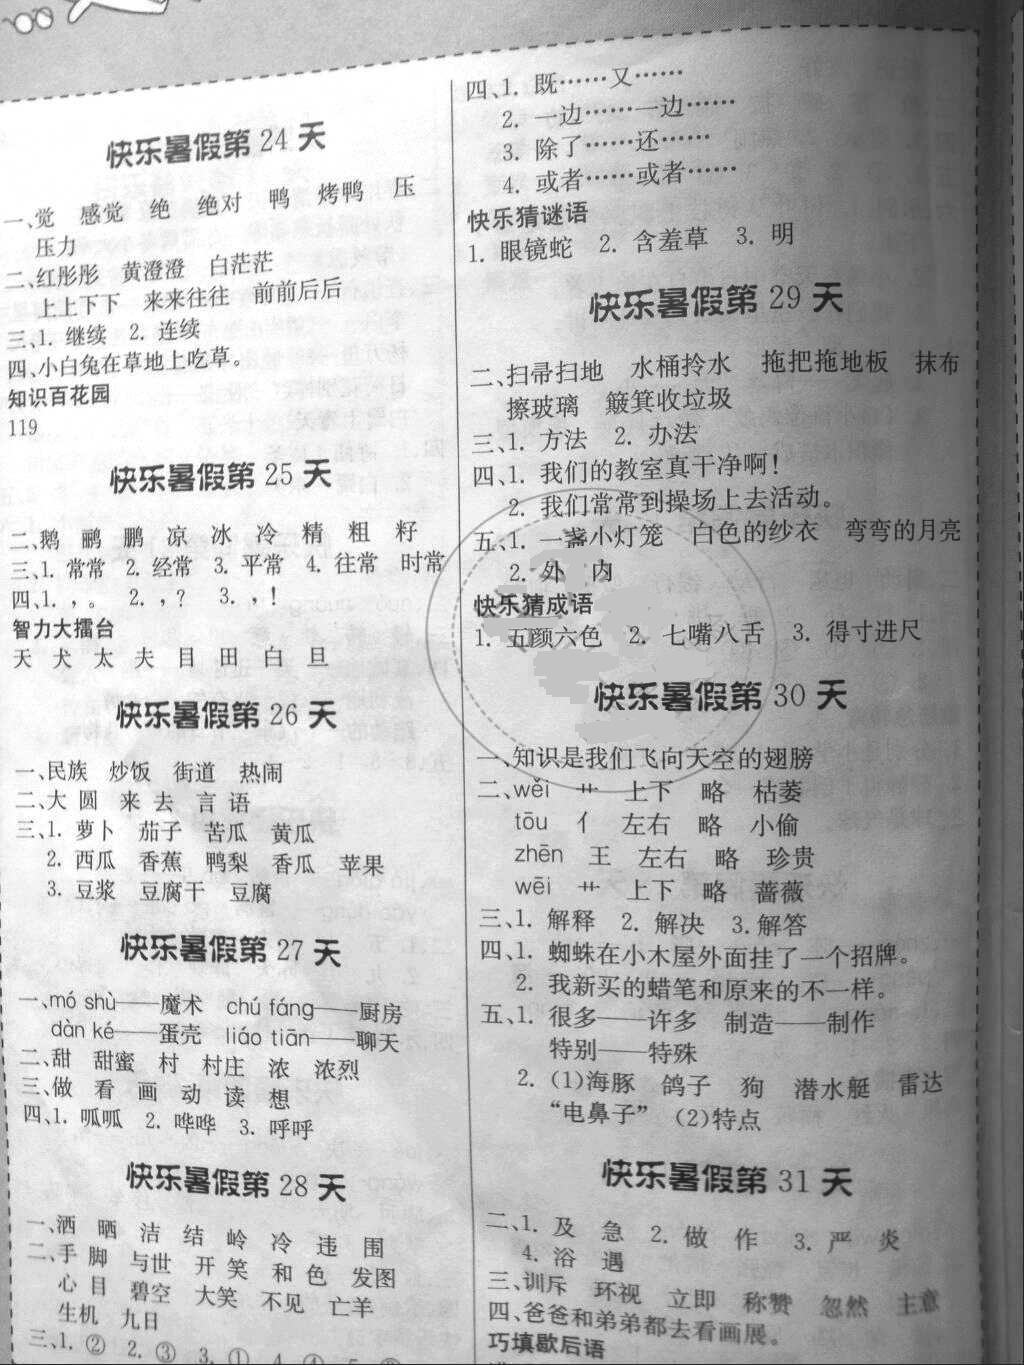 快乐暑假第 24 天
一、觉 感觉 绝 绝对 鸭 烤鸭 压
压力
二、红彤彤 黄澄澄 白茫茫
上上下下 来来往往 前前后后
三、1. 继续 2. 连续
四、小白兔在草地上吃草。
知识百花园
119
快乐暑假第 25 天
二、鹅 鹂 鹏 凉 冰 冷 精 粗 籽
三、1. 常常 2. 经常 3. 平常 4. 往常 时常
四、1. ，。 2. ，？ 3. ，！
智力大擂台
天 犬 太 夫 目 田 白 旦
快乐暑假第 26 天
一、民族 炒饭 街道 热闹
二、大 圆 来 去 言 语
三、1. 萝卜 茄子 苦瓜 黄瓜
2. 西瓜 香蕉 鸭梨 香瓜 苹果
3. 豆浆 豆腐干 豆腐
快乐暑假第 27 天
一、mó shù——魔术 chú fáng——厨房
dàn ké——蛋壳 liáo tiān——聊天
二、甜 甜蜜 村 村庄 浓 浓烈
三、做 看 画 动 读 想
四、1. 呱呱 2. 哗哗 3. 呼呼
快乐暑假第 28 天
一、洒 晒 洁 结 岭 冷 违 围
二、手 脚 与世 开 笑 和 色 发图
心 目 碧空 大笑 不见 亡羊
生机 九日
三、1. ② 2. ③ 3. ① 4. ④
四、1. 既……又……
2. 一边……一边……
3. 除了……还……
4. 或者……或者……
快乐猜谜语
1. 眼镜蛇 2. 含羞草 3. 明
快乐暑假第 29 天
二、扫帚扫地 水桶拎水 拖把拖地板 抹布
擦玻璃 簸箕收垃圾
三、1. 方法 2. 办法
四、1. 我们的教室真干净啊！
2. 我们常常到操场上去活动。
五、1. 一盏小灯笼 白色的纱衣 弯弯的月亮
2. 外 内
快乐猜成语
1. 五颜六色 2. 七嘴八舌 3. 得寸进尺
快乐暑假第 30 天
一、知识是我们飞向天空的翅膀
二、wěi 艹 上下 略 枯萎
tōu 亻 左右 略 小偷
zhēn 王 左右 略 珍贵
wēi 艹 上下 略 蔷薇
三、1. 解释 2. 解决 3. 解答
四、1. 蜘蛛在小木屋外面挂了一个招牌。
2. 我新买的蜡笔和原来的不一样。
五、1. 很多——许多 制造——制作
特别——特殊
2. (1)海豚 鸽子 狗 潜水艇 雷达
“电鼻子” (2)特点
快乐暑假第 31 天
二、1. 及 急 2. 做 作 3. 严 炎
4. 浴 遇
三、训斥 环视 立即 称赞 忽然 主意
四、爸爸和弟弟都去看画展。
巧填歇后语